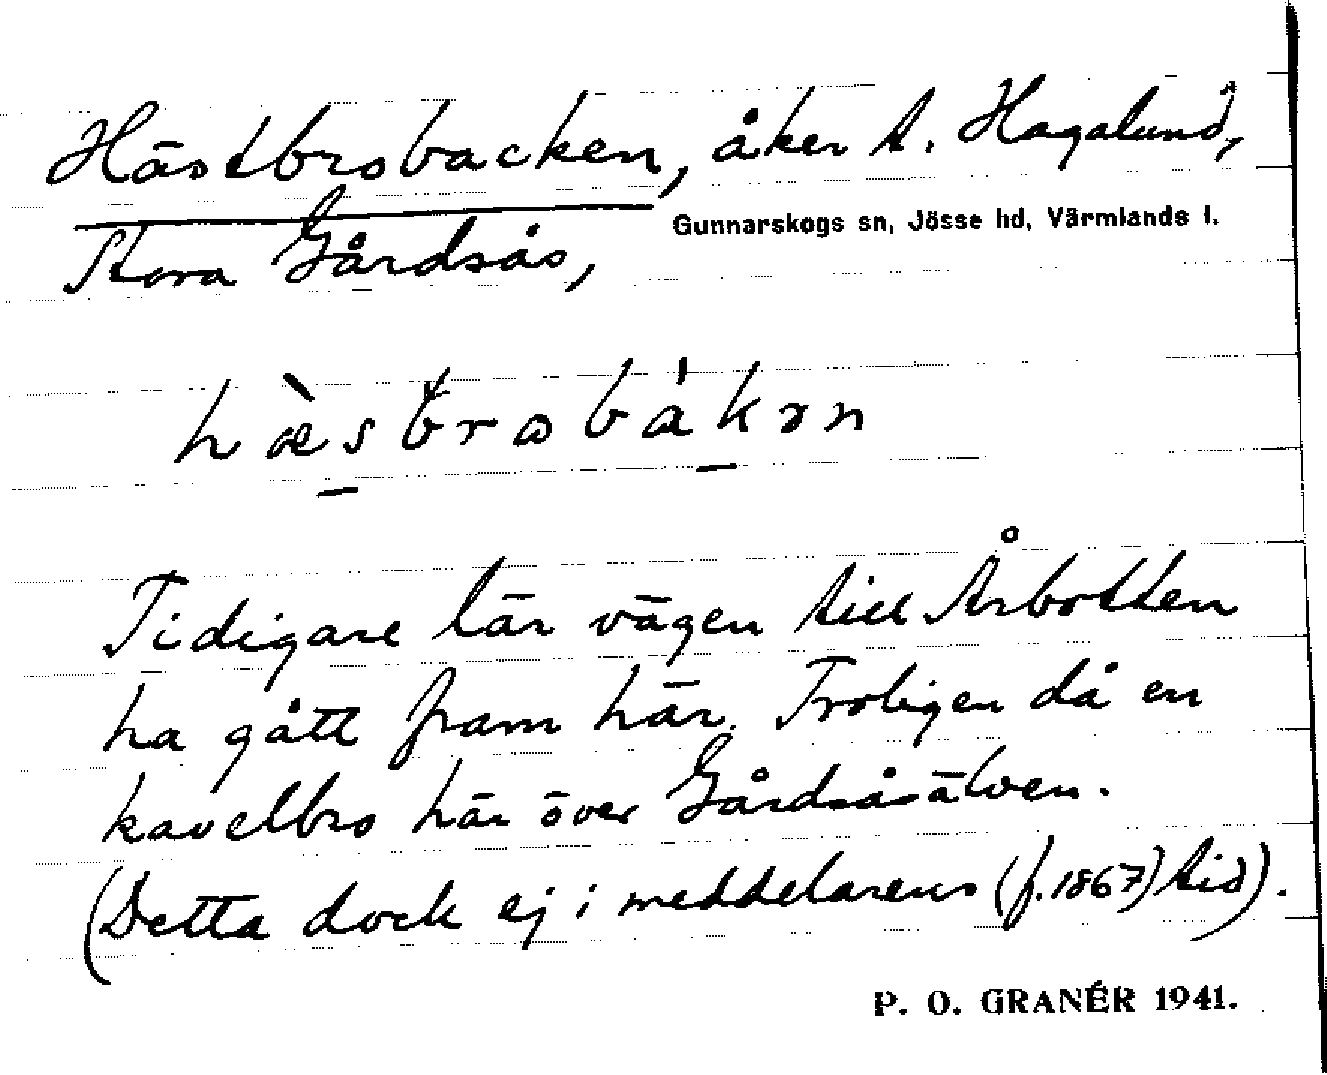 Hästbrobacken, åker t. Hagalund,
Gunnarskogs sn, Jösse hd, Värmlands l.
Stora Gårdsås,
hæ̀sbrobákən
Tidigare lär vägen till Årbotten
ha gått fram här. Troligen då en
kavelbro här över Gårdsåsälven.
(Detta dock ej i meddelarens (f. 1867) tid).
P. O. GRANÉR 1941.